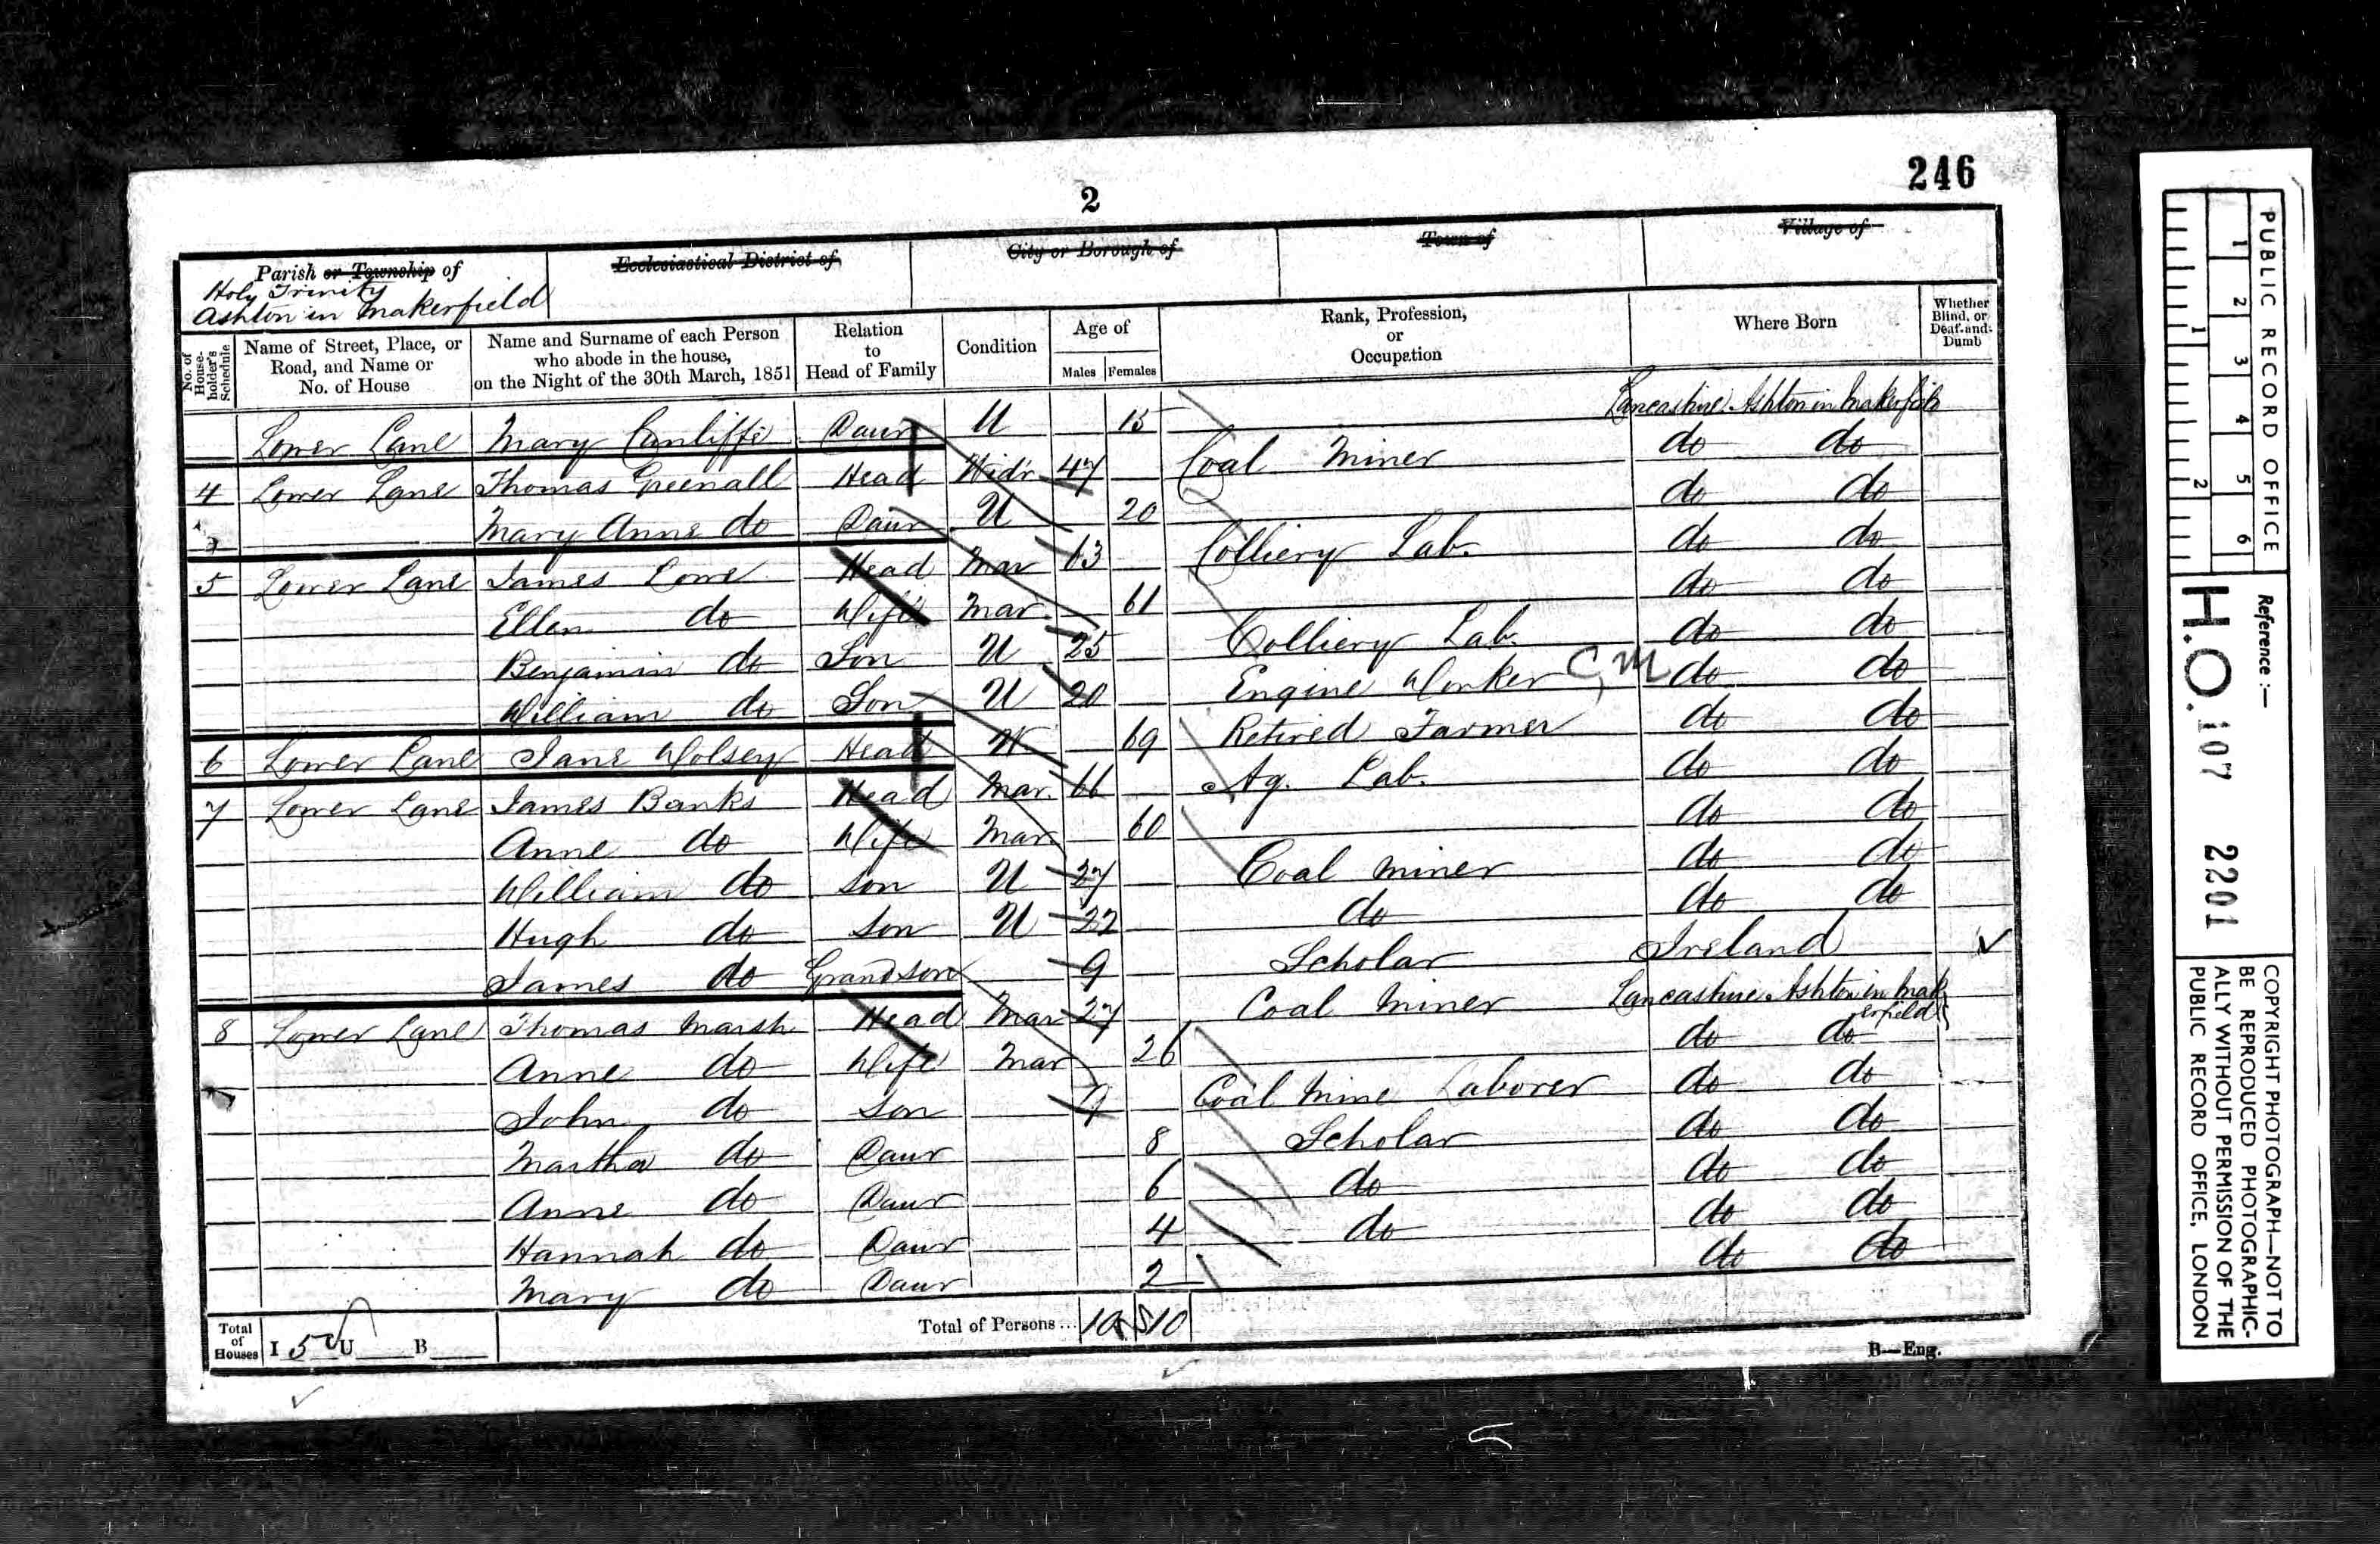 246
2
Parish or Township of
Holy Trinity
Ashton in Makerfield
Ecclesiastical District of
City or Borough of
Town of
Village of
No. of House-holder's Schedule
Name of Street, Place, or Road, and Name or No. of House
Name and Surname of each Person who abode in the house, on the Night of the 30th March, 1851
Relation to Head of Family
Condition
Age of
Males Females
Rank, Profession, or Occupation
Where Born
Whether Blind, or Deaf-and-Dumb
Lower Lane Mary Cunliffe Daur U 15 Lancashire Ashton in Makerfield
4 Lower Lane Thomas Greenall Head Widr 47 Coal Miner do do
Mary Anne do Daur U 20 do do
5 Lower Lane James Lowe Head Mar 63 Colliery Lab. do do
Ellen do Wife Mar 61 do do
Benjamin do Son U 25 Colliery Lab. do do
William do Son U 20 Engine Worker C M do do
6 Lower Lane Jane Wolsey Head 69 Retired Farmer do do
7 Lower Lane James Banks Head Mar. 66 Ag. Lab. do do
Anne do Wife Mar 60 do do
William do Son U 27 Coal Miner do do
Hugh do Son U 22 do do do
James do Grandson 9 Scholar Ireland
8 Lower Lane Thomas Marsh Head Mar 27 Coal Miner Lancashire Ashton in Makerfield
Anne do Wife Mar 26 do do
John do Son Coal Mine Laborer do do
Martha do Daur 8 Scholar do do
Anne do Daur 6 do do do
Hannah do Daur 4 do do do
Mary do Daur 2 do do
Total of Houses I 5 U B
Total of Persons... 10 10
B—Eng.
PUBLIC RECORD OFFICE
1 2 3 4 5 6
1 2
Reference :—
H.O. 107 2201
COPYRIGHT PHOTOGRAPH—NOT TO
BE REPRODUCED PHOTOGRAPHIC-
ALLY WITHOUT PERMISSION OF THE
PUBLIC RECORD OFFICE, LONDON